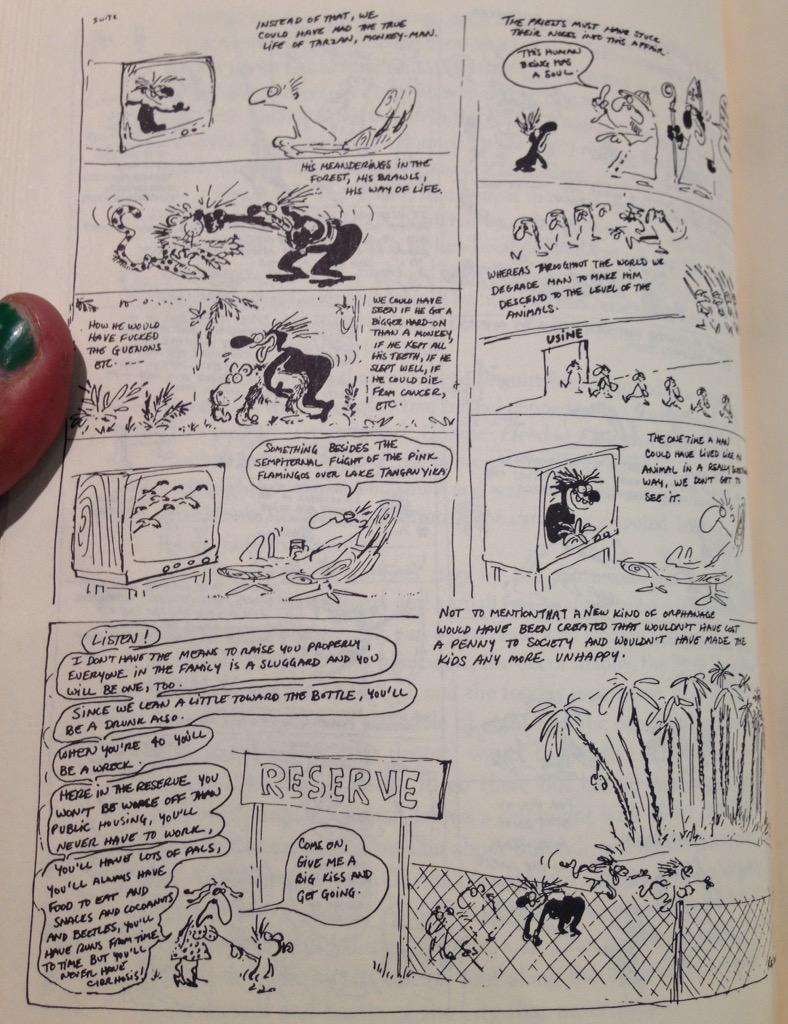 SUITE
INSTEAD OF THAT, WE
COULD HAVE HAD THE TRUE
LIFE OF TARZAN, MONKEY-MAN.
HIS MEANDERINGS IN THE
FOREST, HIS BRAWLS,
HIS WAY OF LIFE.
HOW HE WOULD
HAVE FUCKED
THE GUENONS
ETC. ----
WE COULD HAVE
SEEN IF HE GOT A
BIGGER HARD-ON
THAN A MONKEY,
IF HE KEPT ALL
HIS TEETH, IF HE
SLEPT WELL, IF
HE COULD DIE
FROM CANCER,
ETC.
SOMETHING BESIDES THE
SEMPITERNAL FLIGHT OF THE PINK
FLAMINGOS OVER LAKE TANGANYIKA
THE PRIESTS MUST HAVE STUCK
THEIR NOSES INTO THIS AFFAIR.
THIS HUMAN
BEING HAS
A SOUL
WHEREAS THROUGHOUT THE WORLD WE
DEGRADE MAN TO MAKE HIM
DESCEND TO THE LEVEL OF THE
ANIMALS.
USINE
THE ONE TIME A MAN
COULD HAVE LIVED LIKE AN
ANIMAL IN A REALLY
WAY, WE DON'T GET TO
SEE IT.
NOT TO MENTION THAT A NEW KIND OF ORPHANAGE
WOULD HAVE BEEN CREATED THAT WOULDN'T HAVE COST
A PENNY TO SOCIETY AND WOULDN'T HAVE MADE THE
KIDS ANY MORE UNHAPPY.
LISTEN!
I DON'T HAVE THE MEANS TO RAISE YOU PROPERLY,
EVERYONE IN THE FAMILY IS A SLUGGARD AND YOU
WILL BE ONE, TOO.
SINCE WE LEAN A LITTLE TOWARD THE BOTTLE, YOU'LL
BE A DRUNK ALSO.
WHEN YOU'RE 40 YOU'LL
BE A WRECK.
HERE IN THE RESERVE YOU
WON'T BE WORSE OFF THAN
PUBLIC HOUSING, YOU'LL
NEVER HAVE TO WORK,
YOU'LL HAVE LOTS OF PALS,
YOU'LL ALWAYS HAVE
FOOD TO EAT AND
SNACKS AND COCOANUTS
AND BEETLES, YOU'LL
HAVE RUNS FROM TIME
TO TIME BUT YOU'LL
NEVER HAVE
CIRRHOSIS!
RESERVE
COME ON,
GIVE ME A
BIG KISS AND
GET GOING.